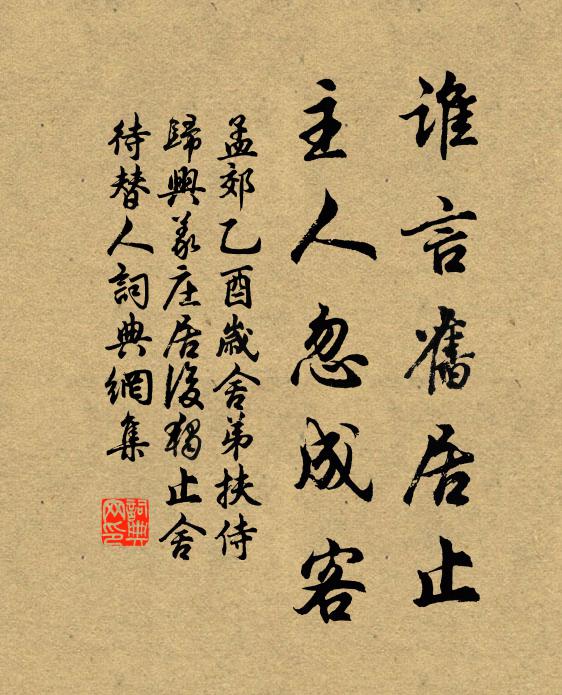 誰言舊居止
主人忽成客
孟郊乙酉歲舍弟扶侍
歸興義庄居後獨止舍
待替人詞典網集
詞典
网印